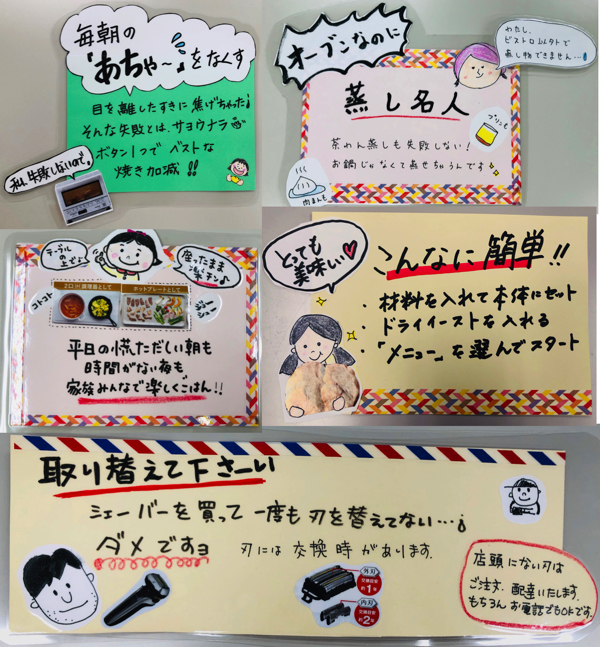 毎朝の
「あちゃ〜」をなくす
目を離したすきに焦げちゃった
そんな失敗とは、サヨウナラ
ボタン1つでベストな
焼き加減!!
私、失敗しないので。
オーブンなのに
わたし、
ビストロ以外で
蒸し物できません…
蒸し名人
プリンも
茶わん蒸しも失敗しない!
お鍋じゃなくて蒸せちゃうんです
肉まんも
テーブルの
上でも♪
座ったまま
楽チン♪
2口IH調理器として
ホットプレートとして
コトコト
ジュージュー
平日の慌ただしい朝も
時間がない夜も、
家族みんなで楽しくごはん!!
とっても
美味しい
こんなに簡単!!
・材料を入れて本体にセット
・ドライイーストを入れる
・「メニュー」を選んでスタート
取り替えて下さーい
シェーバーを買って一度も刃を替えてない…
ダメですョ
刃には交換時があります。
外刃
交換目安
約1年
内刃
交換目安
約2年
店頭にない刃は
ご注文、配達いたします。
もちろんお電話でもOKです。